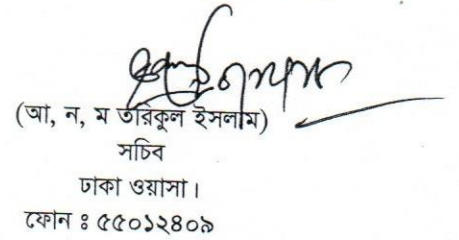 (আ, ন, ম তারিকুল ইসলাম)
সচিব
ঢাকা ওয়াসা।
ফোন ঃ ৫৫০১২৪০৯